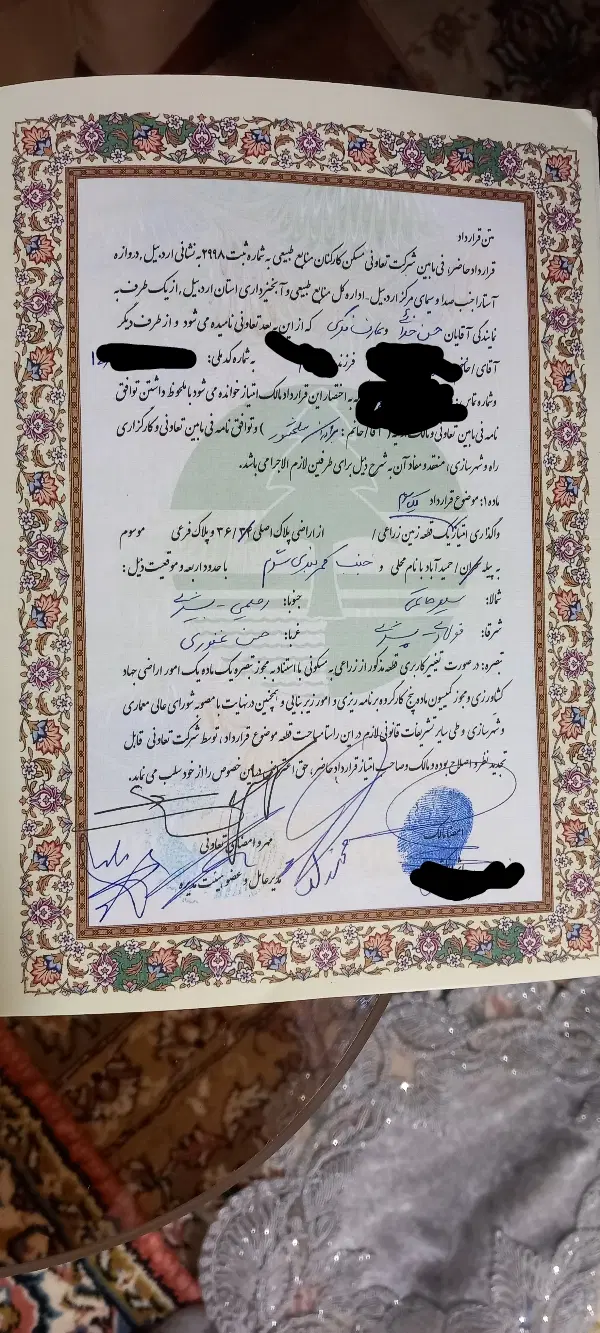 متن قرارداد
قرارداد حاضر، فی مابین شرکت تعاونی مسکن کارکنان منابع طبیعی به شماره ثبت ۲۹۹۸ به نشانی اردبیل، دروازه
آستارا جنب صدا و سیمای مرکز اردبیل - اداره کل منابع طبیعی و آبخیزداری استان اردبیل، از یک طرف به
نمایندگی آقایان حسن و که از این به بعد تعاونی نامیده می شود و از طرف دیگر
آقای / خانم فرزند به شماره کد ملی:
و شماره به اختصار این قرارداد مالک امتیاز خوانده می شود با ملحوظ داشتن توافق
نامه فی مابین تعاونی و مالک آقا / خانم: ) و توافق نامه فی مابین تعاونی و کارگزاری
راه و شهرسازی، منعقد و مفاد آن به شرح ذیل برای طرفین لازم الاجرا می باشد.
ماده ۱: موضوع قرارداد
واگذاری امتیاز یک قطعه زمین زراعی / از اراضی پلاک اصلی ۳۶/ و پلاک فرعی موسوم
به پیله / حمید آباد با نام محلی و با حدود اربعه و موقعیت ذیل:
شمالا: جنوبا: رحیمی -
شرقا: فولادی - غربا: حسن غفوری
تبصره: در صورت تغییر کاربری قطعه مذکور از زراعی به مسکونی با استناد به مجوز تبصره یک ماده یک امور اراضی جهاد
کشاورزی و مجوز کمیسیون ماده پنج کارگروه برنامه ریزی و امور زیربنایی و همچنین در نهایت با مصوبه شورای عالی معماری
و شهرسازی و طی سایر تشریفات قانونی لازم در این راستا مساحت قطعه موضوع قرارداد، توسط شرکت تعاونی قابل
تجدید نظر و اصلاح بوده و مالک و صاحب امتیاز قرارداد حاضر، حق اعتراض در این خصوص را از خود سلب می نماید.
امضا مالک
مهر و امضای تعاونی
مدیر عامل و عضو هیئت مدیره